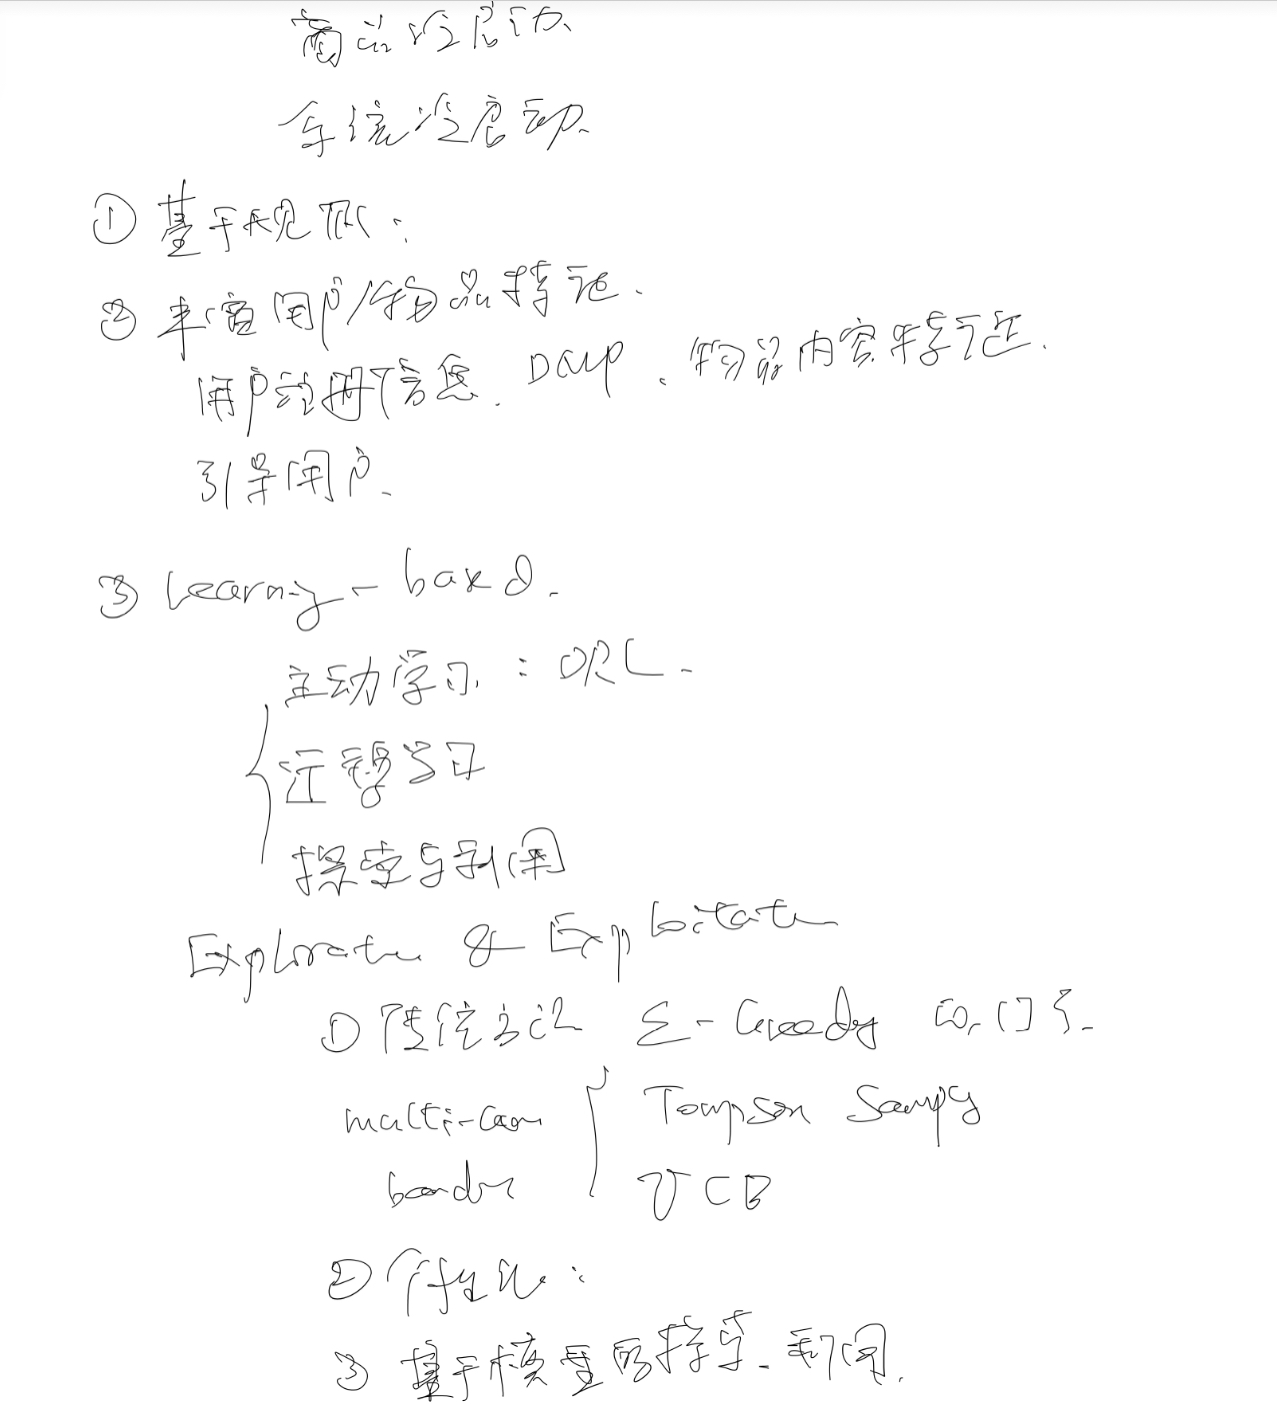 商品冷启动
系统冷启动.
① 基于规则：
② 丰富用户/物品特征.
用户注册信息. DMP. 物品内容特征.
引导用户.
③ Learning-based.
主动学习：ORL.
迁移学习
探索与利用
Explorate & Exploitate
① 传统方法 ε-Greedy
multi-arm
bandit
Tompson Sampg
UCB
② 个性化：
③ 基于模型的探索.利用.